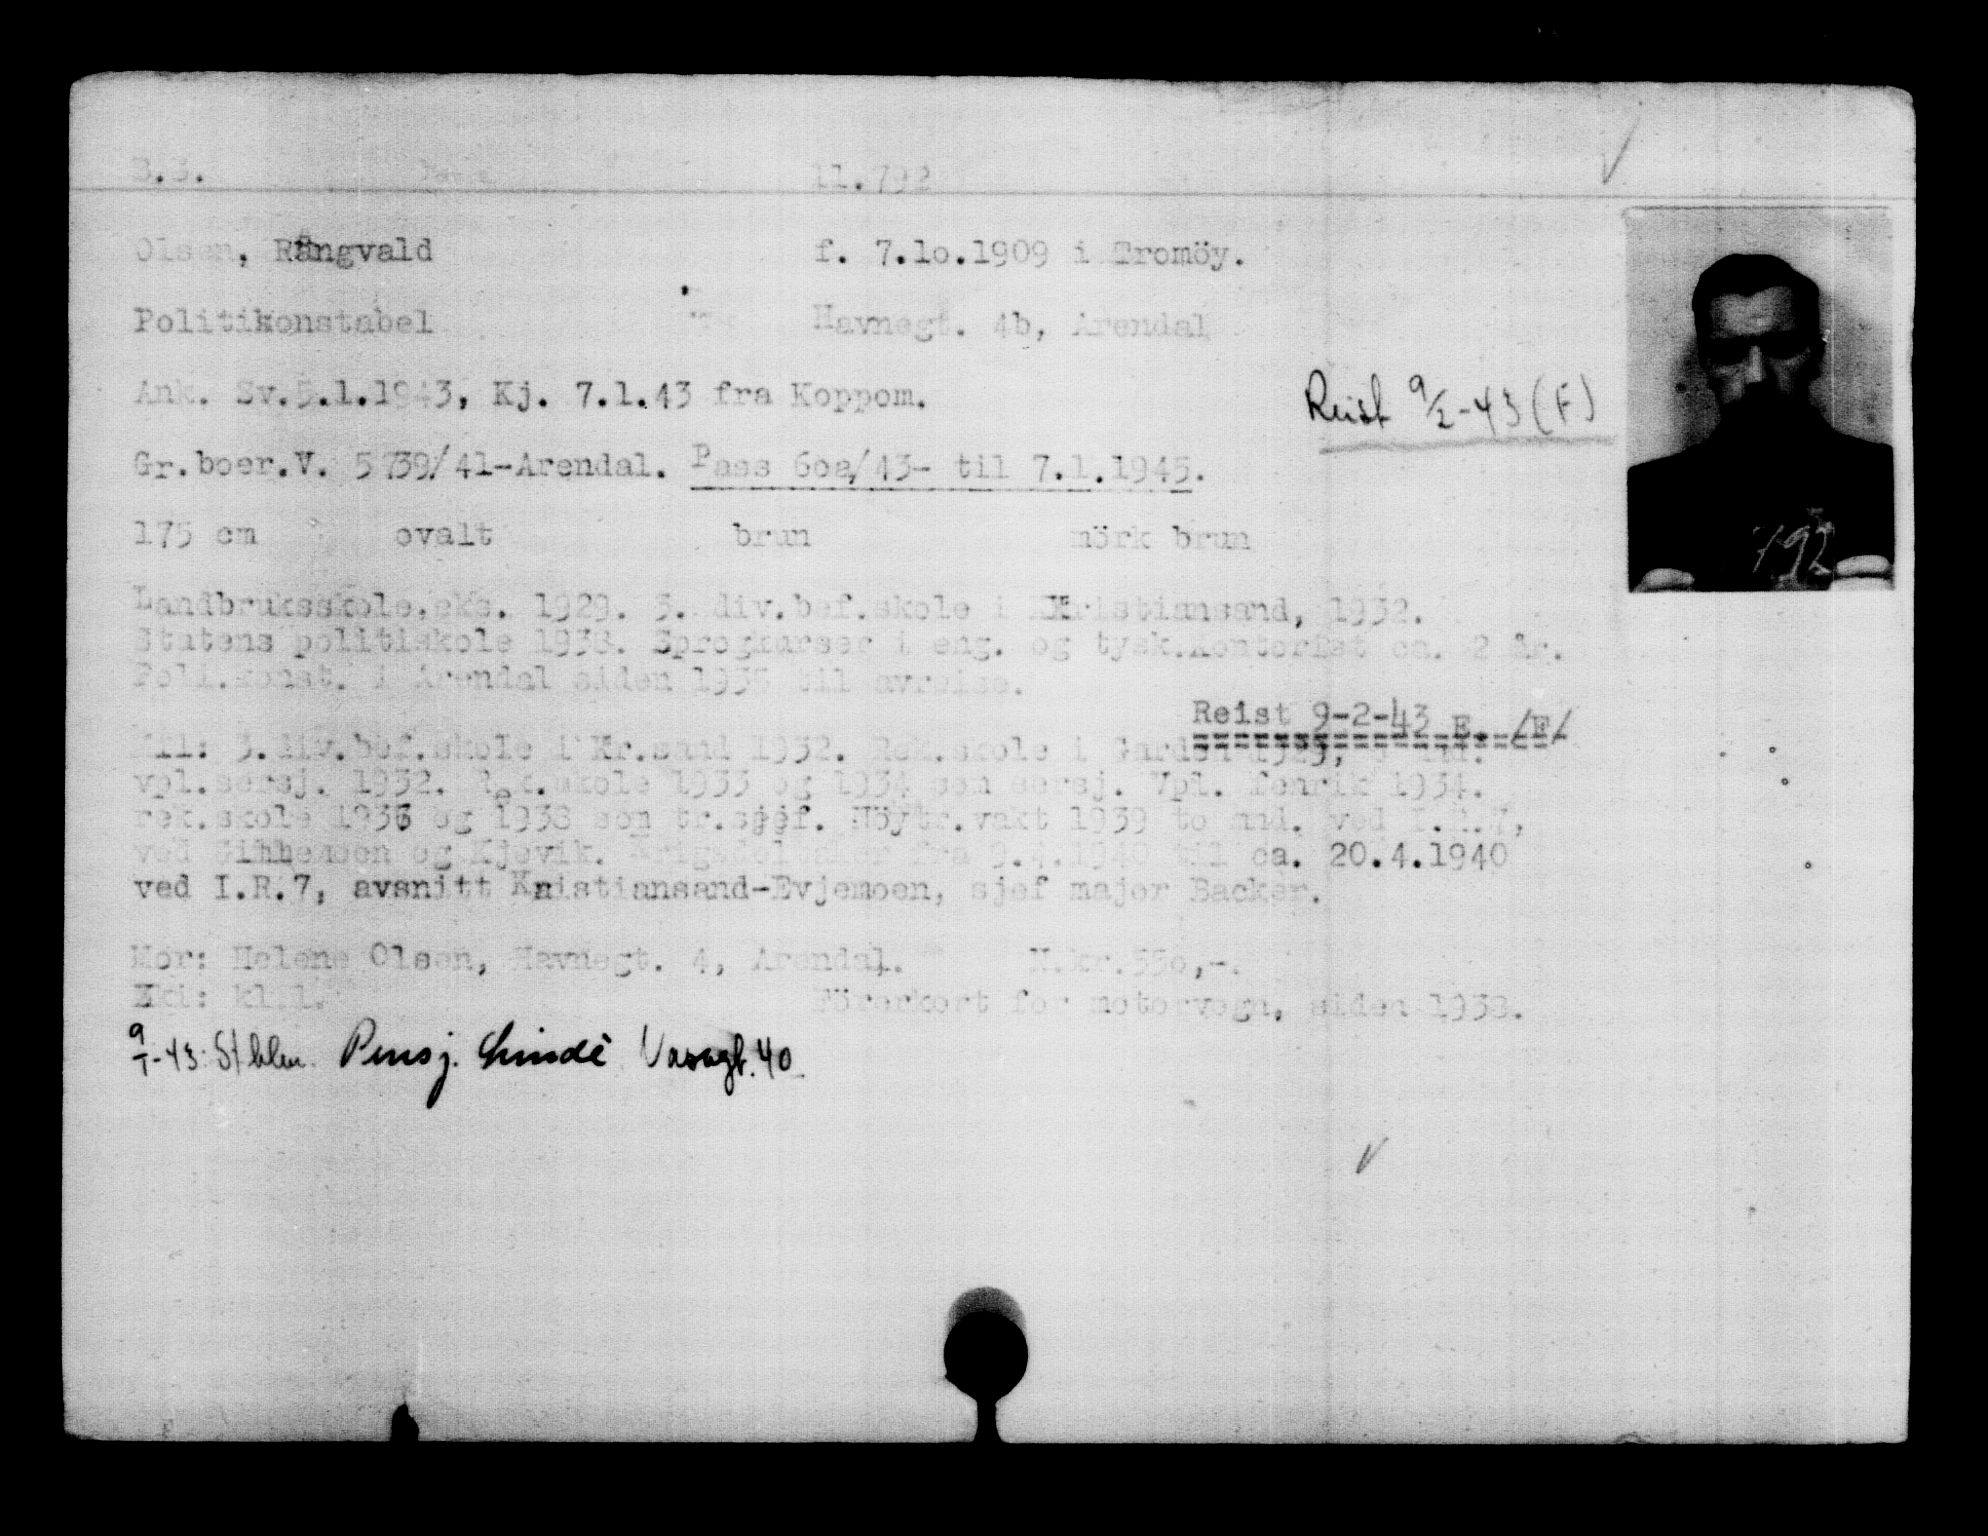 11.792
Olsen, Rangvald f. 7.1o.1909 i Tromöy.
Politikonstabel Havnegt. 4b, Arendal
Ank. Sv.5.1.1943, Kj. 7.1.43 fra Koppom.
Reist 9/2-43 (F)
Gr.boer.V. 5739/41-Arendal. Pass 6oa/43- til 7.1.1945.
175 cm ovalt brun mörk brun
792
Landbruksskole,eks. 1929. 3. div.bef.skole i Kristiansand, 1932.
Statens politiskole 1938. Sprogkurser i eng. og tysk.Kontorist ca. 2 år.
Poli.konst. i Arendal siden 1935 til avreise.
Reist 9-2-43 E. /F/
Mil: 3.div.bef.skole i Kr.sand 1932. Rek.skole i
vpl.sersj. 1932. Rek.skole 1933 og 1934 som sersj. Vpl. fenrik 1934.
rek.skole 1936 og 1938 som tr.sjef. Nöytr.vakt 1939 to mnd. ved I.R.7,
ved Gimlemoen og Kjevik. fra 9.4.1940 til ca. 20.4.1940
ved I.R.7, avsnitt Kristiansand-Evjemoen, sjef major Backer.
Mor: Helene Olsen, Havnegt. 4, Arendal. N.kr.55o,-.
Ski: kl.1. Förerkort for motorvogn, siden 1938.
9/1-43: Sthlm. Pensj. Lindé Vasagt. 40